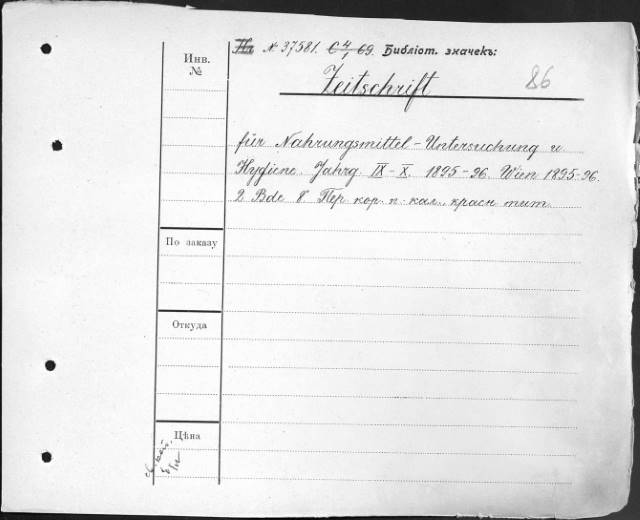 № 37581. C 4/1 69. Библіот. значекъ:
Zeitschrift
86
Инв.
№
für Nahrungsmittel-Untersuchung u
Hygiene. Jahrg IX-X. 1895-96. Wien 1895-96.
2 Bde 8° Пер кор. п. кал., красн тит.
По заказу
Откуда
Цѣна